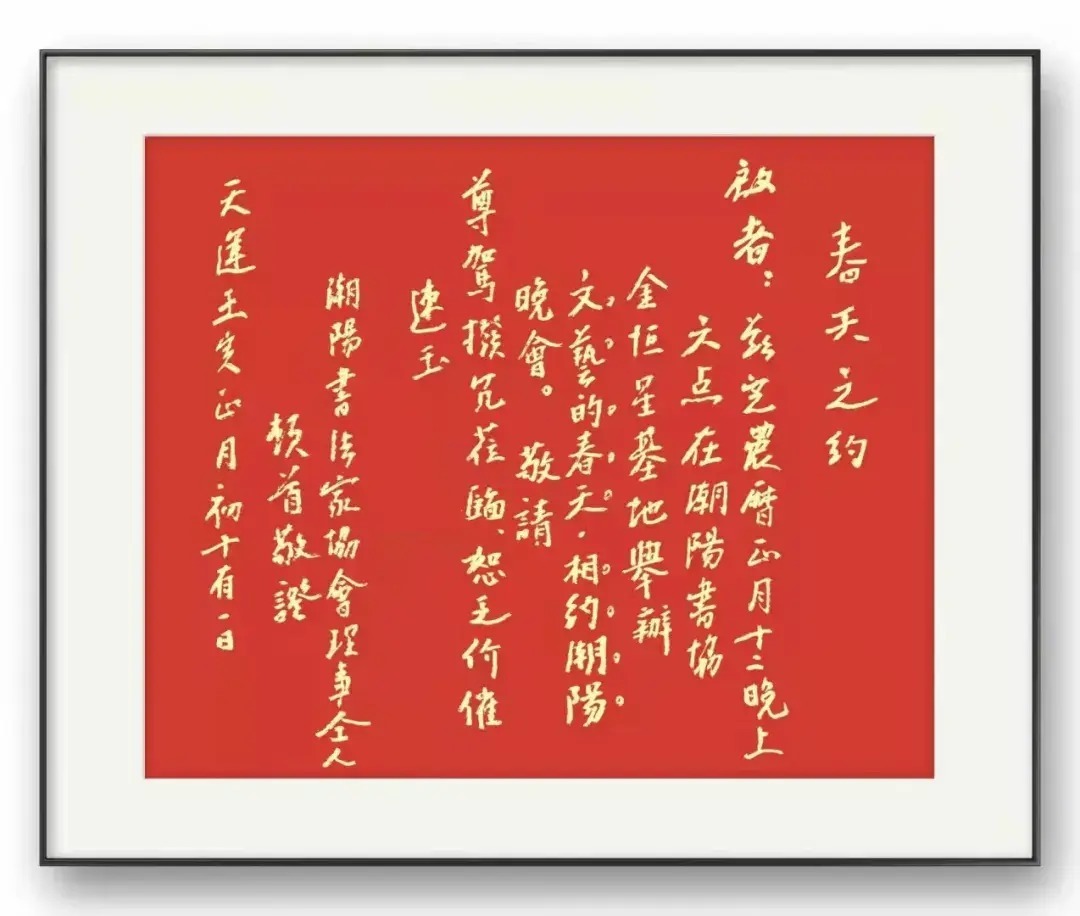 春天之约
啟者：兹定農曆正月十二晚上
六点在潮陽書協
金恒星基地舉辦
文藝的春天·相约潮陽
晚會。敬請
尊駕撥冗莅臨、恕乏价催
速玉
潮陽書法家協會理事仝人
頓首敬證
天運壬寅正月初十有一日